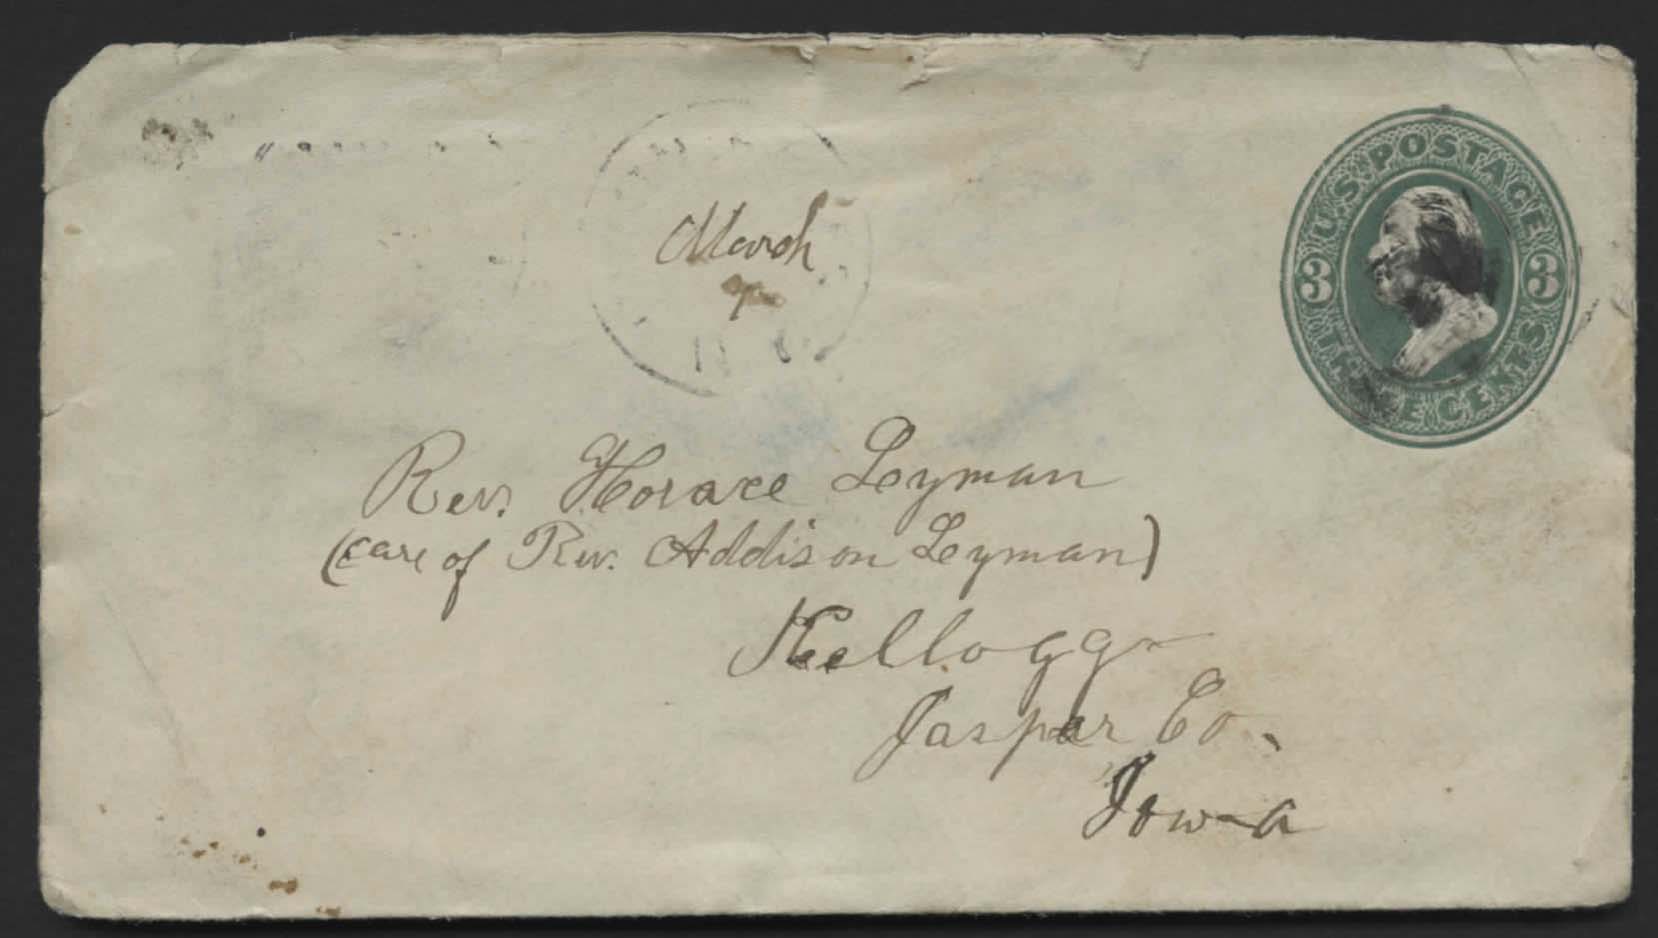 U.S. POSTAGE
3 3
THREE CENTS
March
Rev. Horace Lyman
(care of Rev. Addison Lyman)
Kellogg
Jasper Co.
Iowa